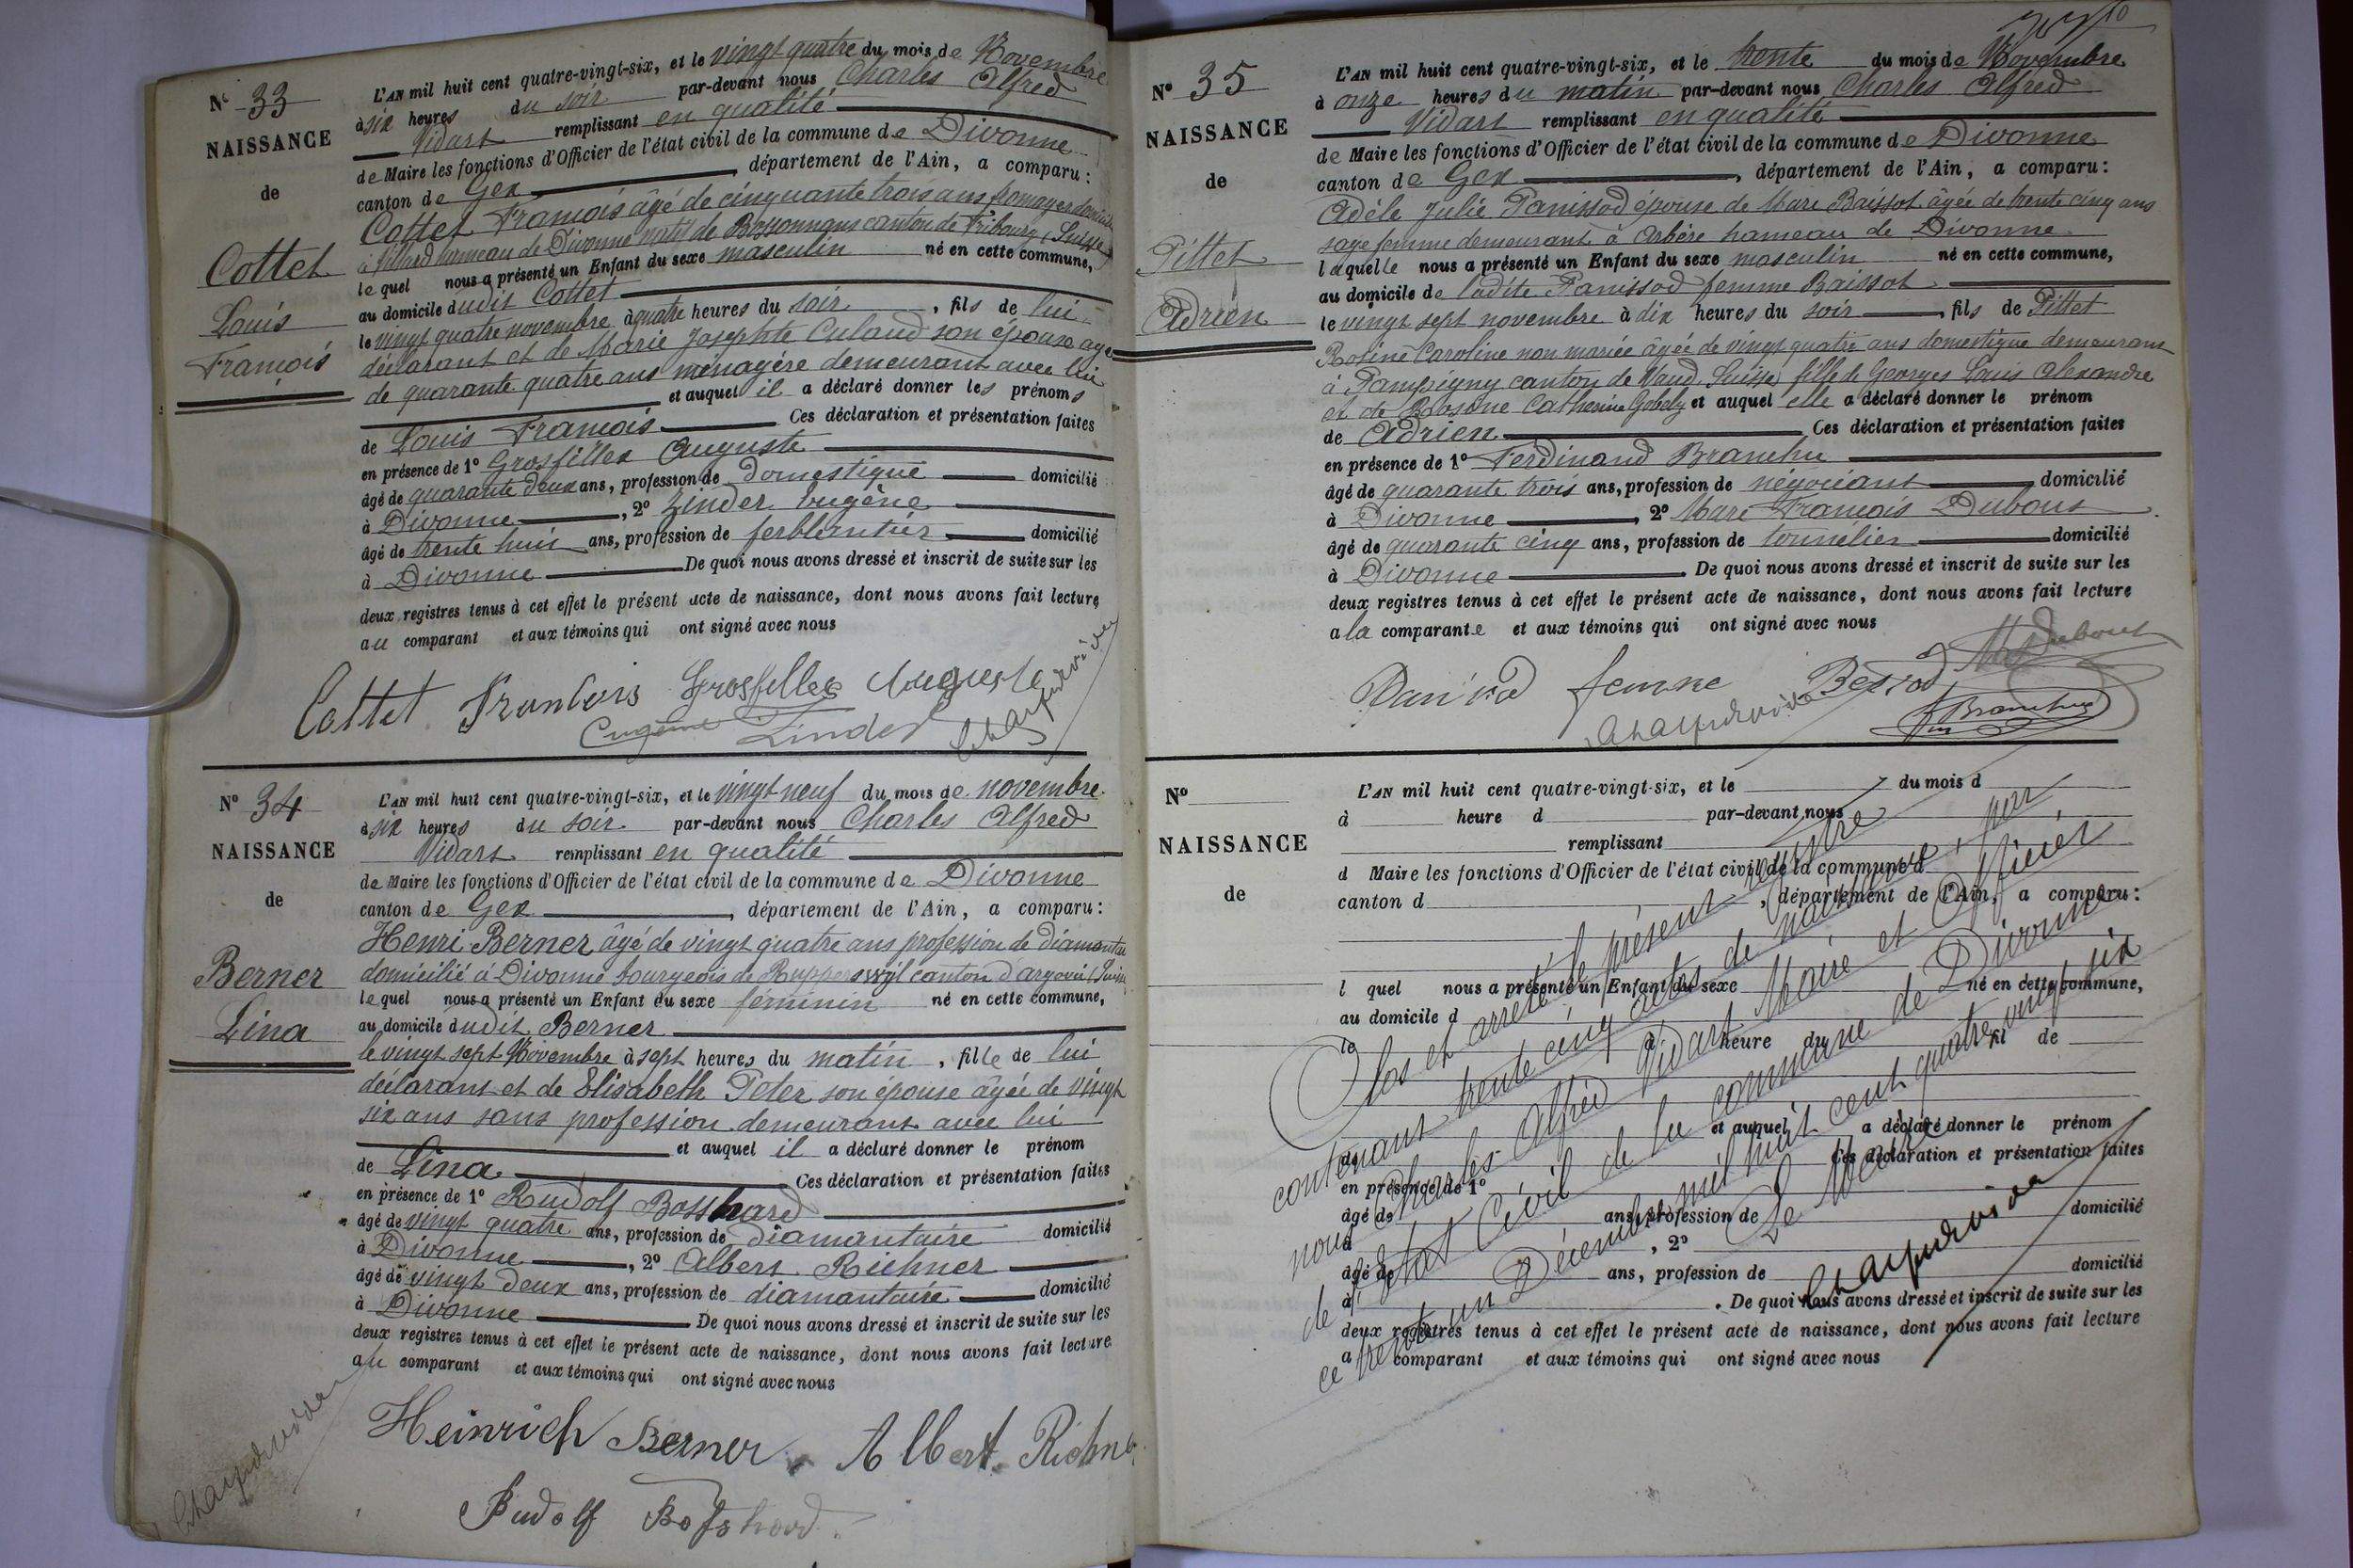 N° 33
NAISSANCE
de
Cottet
Louis
François
L'AN mil huit cent quatre-vingt-six, et le vingt quatre du mois de Novembre
à six heures du soir par-devant nous Charles Alfred
Vidart remplissant en qualité
de Maire les fonctions d'Officier de l'état civil de la commune de Divonne
canton de Gex, département de l'Ain, a comparu:
Cottet François âgé de cinquante trois ans fromager
à Villard hameau de Divonne natif de Bossonnens canton de Fribourg (Suisse)
lequel nous a présenté un Enfant du sexe masculin né en cette commune,
au domicile dudit Cottet
le vingt quatre novembre à quatre heures du soir, fils de lui
déclarant et de Marie Josephte Culand son épouse agée
de quarante quatre ans ménagère demeurant avec lui
et auquel il a déclaré donner les prénoms
de Louis François Ces déclaration et présentation faites
en présence de 1° Grosfillex Auguste
âgé de quarante deux ans, profession de domestique domicilié
à Divonne, 2° Zinder Eugène
âgé de trente huit ans, profession de ferblantier domicilié
à Divonne De quoi nous avons dressé et inscrit de suite sur les
deux registres tenus à cet effet le présent acte de naissance, dont nous avons fait lecture
au comparant et aux témoins qui ont signé avec nous
Cottet François Grosfillex Auguste
Eugène Zinder
N° 34
NAISSANCE
de
Berner
Lina
L'AN mil huit cent quatre-vingt-six, et le vingt-neuf du mois de novembre
à six heures du soir par-devant nous Charles Alfred
Vidart remplissant en qualité
de Maire les fonctions d'Officier de l'état civil de la commune de Divonne
canton de Gex, département de l'Ain, a comparu:
Henri Berner âgé de vingt quatre ans profession de diamantaire
domicilié à Divonne bourgeois de Rupperswyl canton d'argovie (Suisse)
lequel nous a présenté un Enfant du sexe féminin né en cette commune,
au domicile dudit Berner
le vingt sept Novembre à sept heures du matin, fille de lui
déclarant et de Elisabeth Peter son épouse âgée de vingt
six ans sans profession demeurant avec lui
et auquel il a déclaré donner le prénom
de Lina Ces déclaration et présentation faites
en présence de 1° Rudolf Bosshard
âgé de vingt quatre ans, profession de diamantaire domicilié
à Divonne, 2° Albert Richner
âgé de vingt deux ans, profession de diamantaire domicilié
à Divonne De quoi nous avons dressé et inscrit de suite sur les
deux registres tenus à cet effet le présent acte de naissance, dont nous avons fait lecture
au comparant et aux témoins qui ont signé avec nous
Heinrich Berner. Albert Richner
Rudolf Bosshard.
N° 35
NAISSANCE
de
Pittet
Adrien
L'AN mil huit cent quatre-vingt-six, et le trente du mois de Novembre
à onze heures du matin par-devant nous Charles Alfred
Vidart remplissant en qualité
de Maire les fonctions d'Officier de l'état civil de la commune de Divonne
canton de Gex, département de l'Ain, a comparu:
Adèle Julie Panissod épouse de Marc Baissot âgée de trente cinq ans
sage femme demeurant à Arbère hameau de Divonne
laquelle nous a présenté un Enfant du sexe masculin né en cette commune,
au domicile de ladite Panissod femme Baissot
le vingt sept novembre à dix heures du soir, fils de Pittet
Rosine Caroline non mariée âgée de vingt quatre ans domestique demeurant
à Pampigny canton de Vaud (Suisse) fille de Georges Louis Alexandre
et de Rosine Catherine Gobely et auquel elle a déclaré donner le prénom
de Adrien Ces déclaration et présentation faites
en présence de 1° Ferdinand Branchu
âgé de quarante trois ans, profession de négociant domicilié
à Divonne, 2° Marc François Dubout
âgé de quarante cinq ans, profession de tonnelier domicilié
à Divonne. De quoi nous avons dressé et inscrit de suite sur les
deux registres tenus à cet effet le présent acte de naissance, dont nous avons fait lecture
a la comparante et aux témoins qui ont signé avec nous
femme Dubout
Branchu
N°
NAISSANCE
de
L'AN mil huit cent quatre-vingt-six, et le du mois d
à heure d par-devant nous
remplissant
d Maire les fonctions d'Officier de l'état civil de la commune d
canton d, département de l'Ain, a comparu:
l quel nous a présenté un Enfant du sexe né en cette commune,
au domicile d
le à heure du fil de
et auquel a déclaré donner le prénom
de Ces déclaration et présentation faites
en présence de 1°
âgé de ans, profession de domicilié
à, 2°
âgé de ans, profession de domicilié
à. De quoi nous avons dressé et inscrit de suite sur les
deux registres tenus à cet effet le présent acte de naissance, dont nous avons fait lecture
a comparant et aux témoins qui ont signé avec nous
Clos et arrêté le présent registre
contenant trente cinq actes de naissance, par
nous Charles Alfred Vidart Maire et Officier
de l'état Civil de la commune de Divonne
ce trente un Décembre mil huit cent quatre vingt six
Le Maire